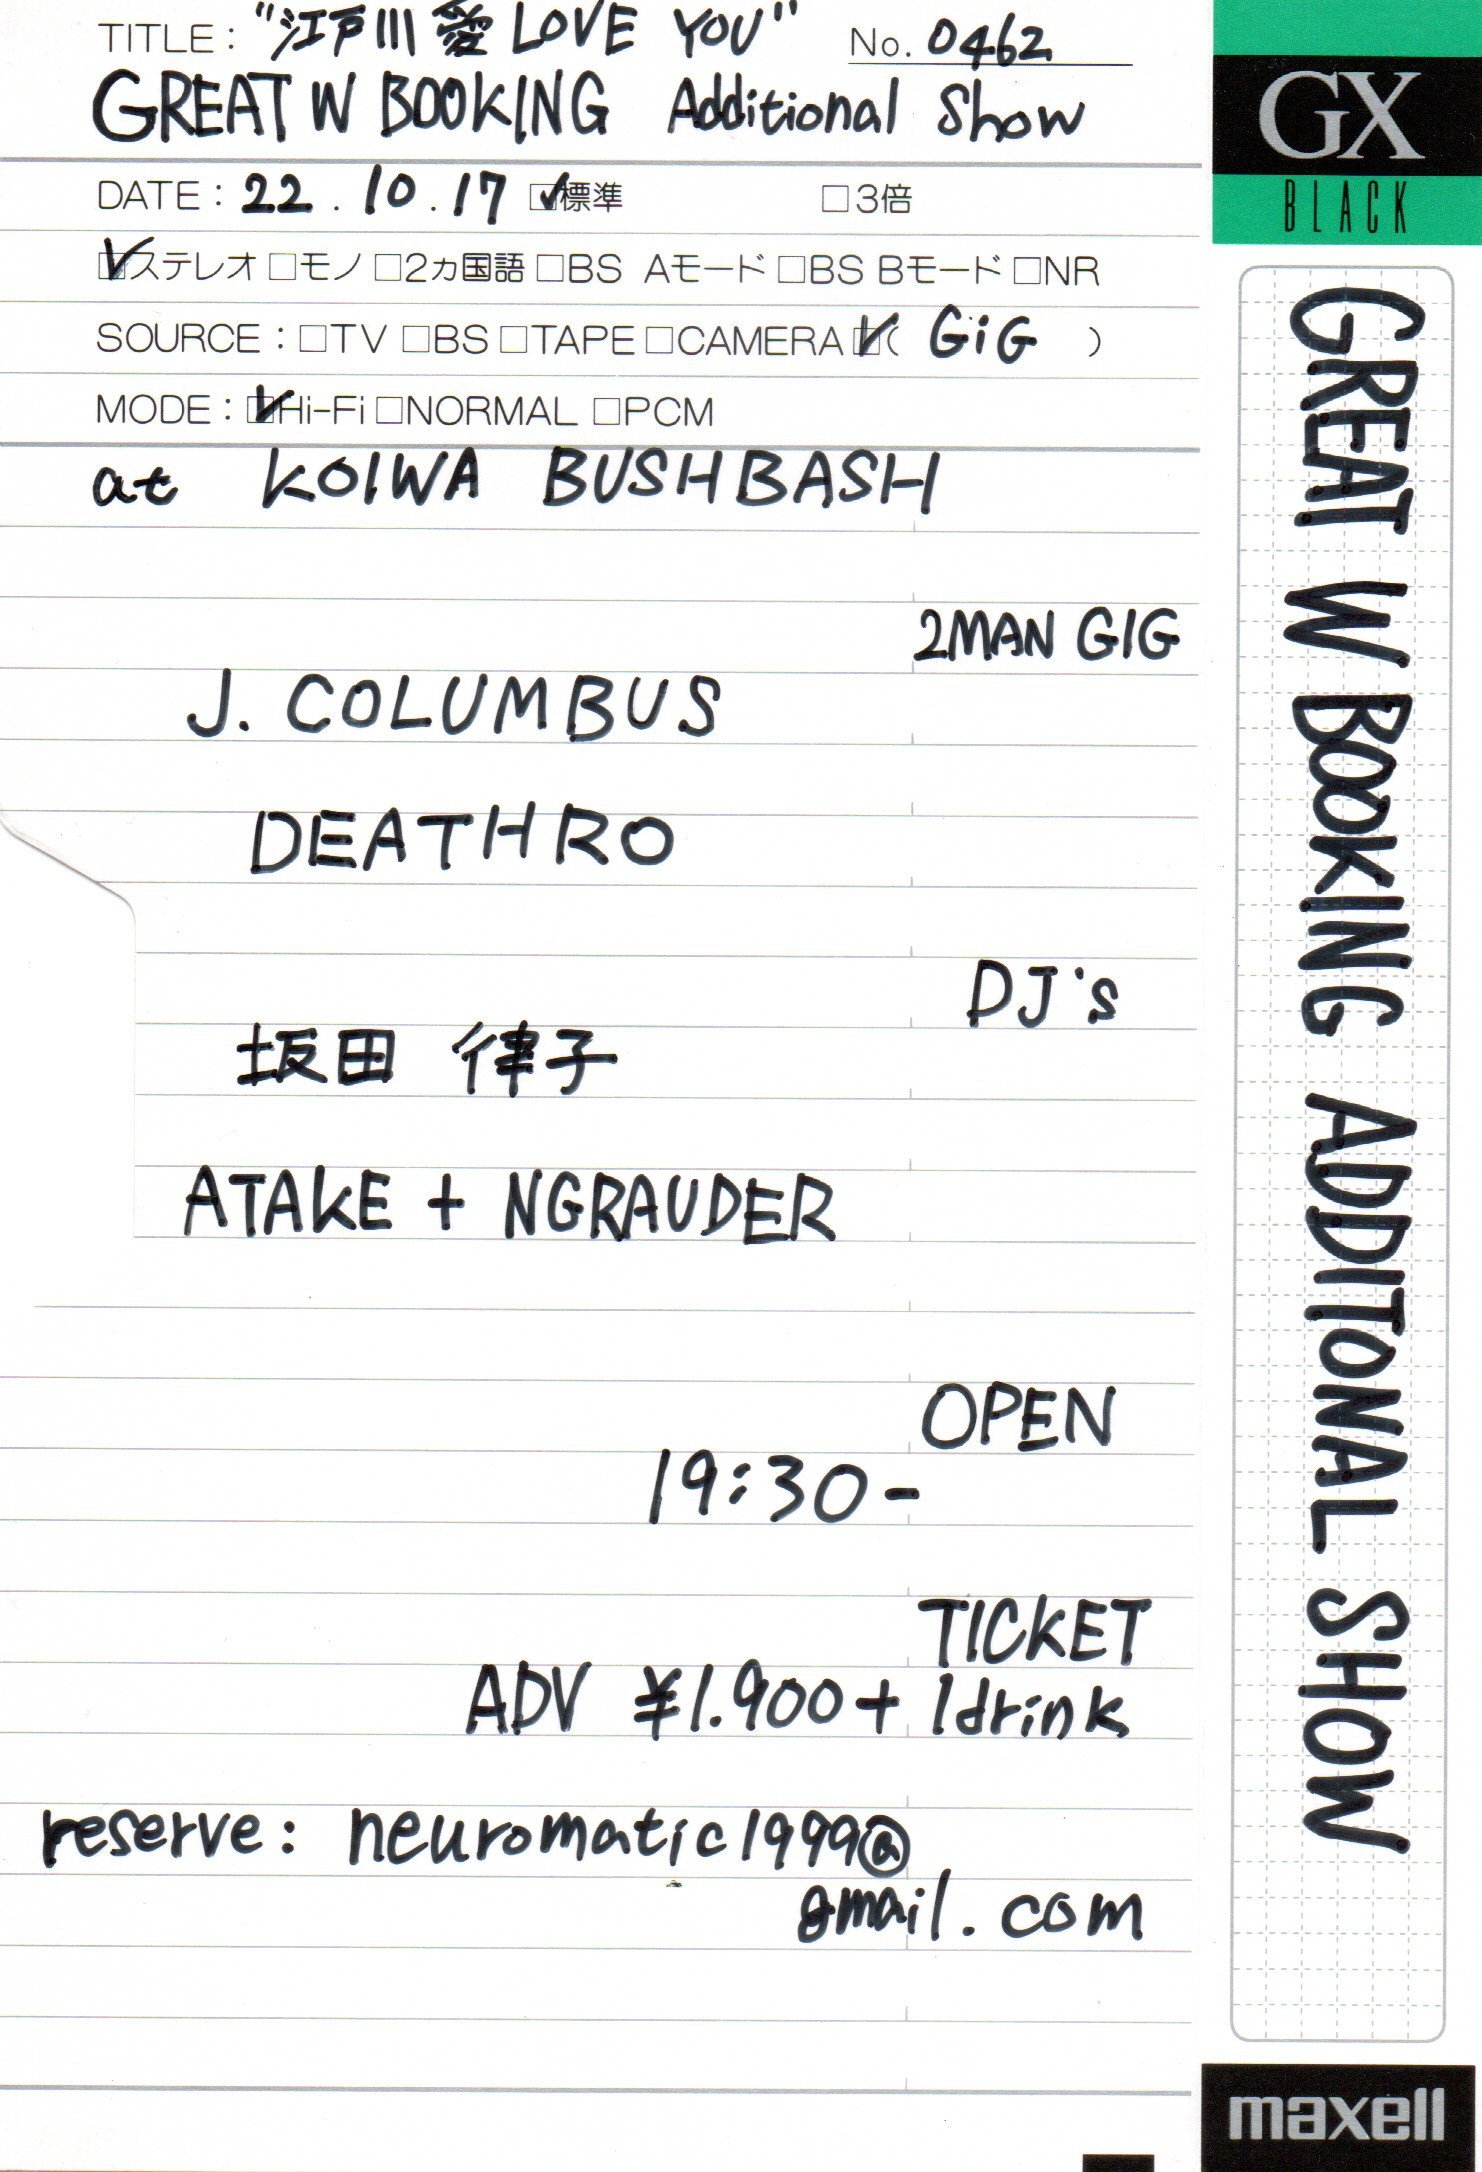 TITLE: "江戸川 愛 LOVE YOU" No. 0462
GREAT W BOOKING Additional Show
DATE: 22. 10. 17 ☑標準 □3倍
☑ステレオ □モノ □2ヵ国語 □BS Aモード □BS Bモード □NR
SOURCE: □TV □BS □TAPE □CAMERA ☑( GiG )
MODE: ☑Hi-Fi □NORMAL □PCM
at KOIWA BUSHBASH
2MAN GIG
J. COLUMBUS
DEATHRO
DJ's
坂田 律子
ATAKE + NGRAUDER
OPEN
19:30-
TICKET
ADV ¥1.900 + 1drink
reserve: neuromatic1999@
gmail.com
GX
BLACK
GREAT W BOOKING ADDITONAL SHOW
maxell